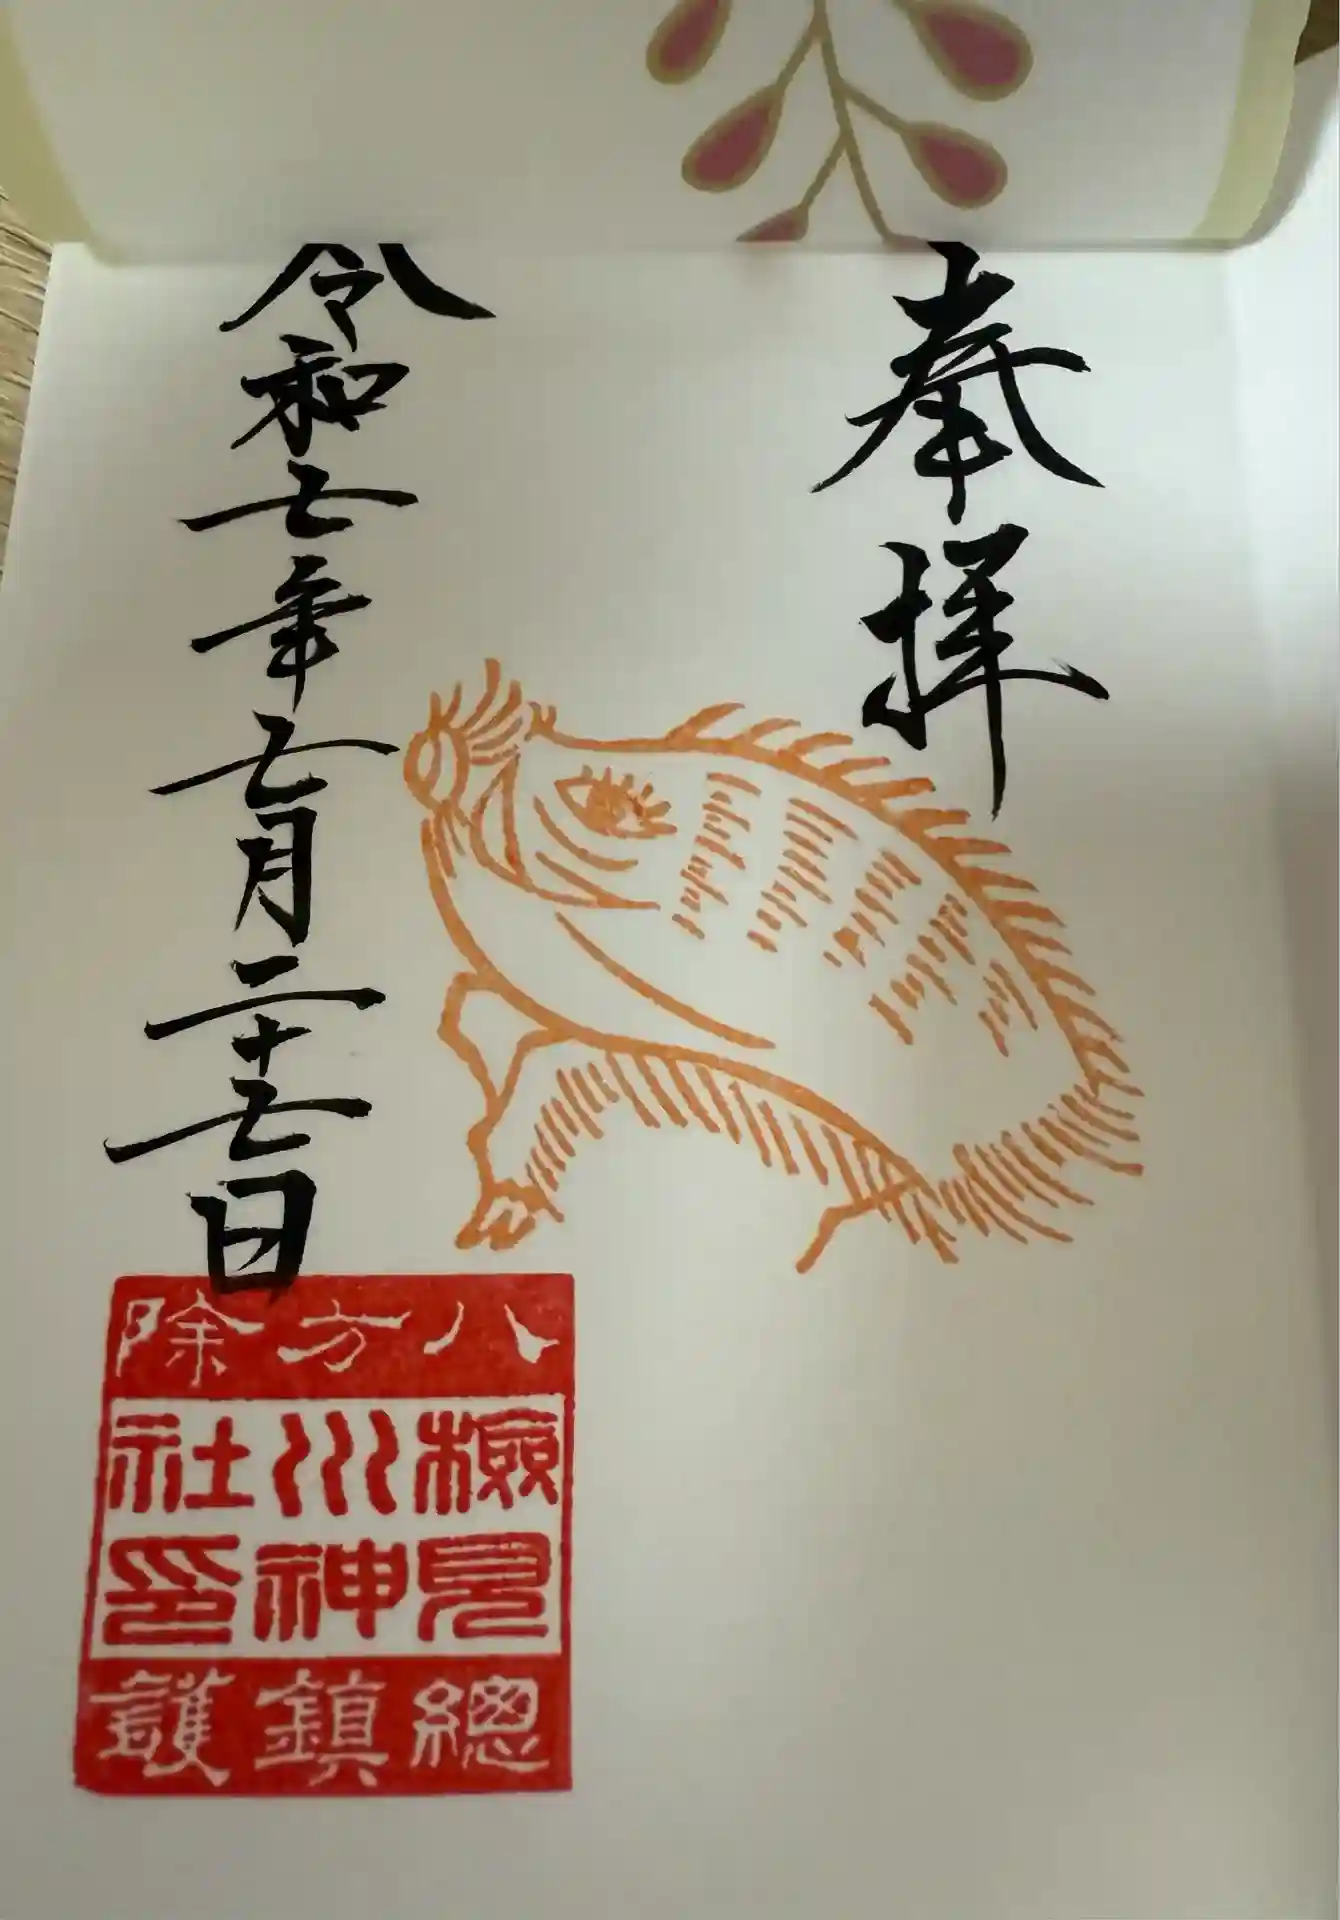 奉拝
令和七年七月二十七日
八方除
檢見川神社印
總鎮護